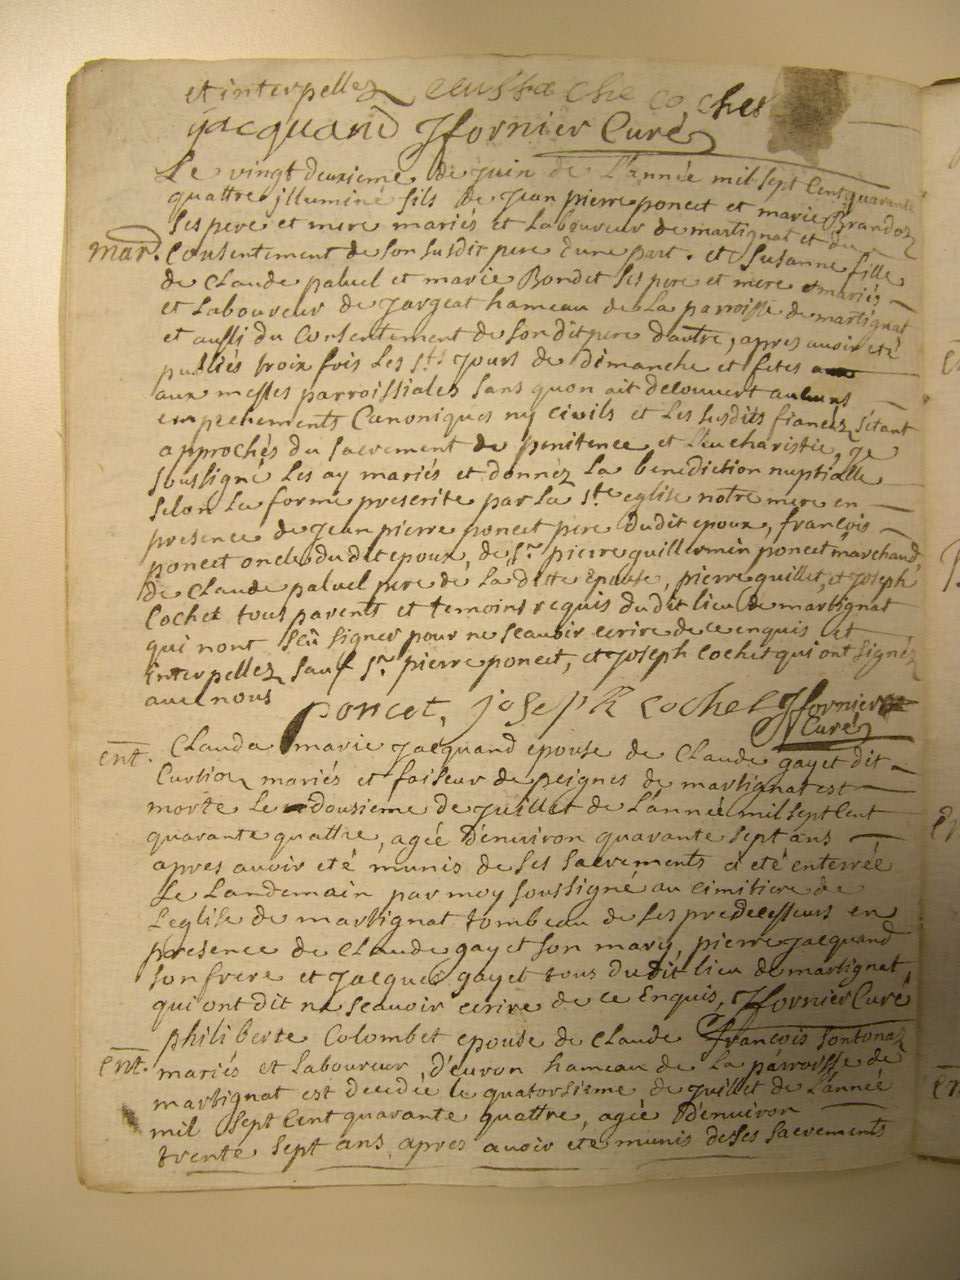 et interpellez eustache cochet
jacquand Jfornier Curé
Le vingt deuxieme de juin de L'année mil sept Cent quarante
quattre illuminé fils de Jean pierre poncet et marie Brandoz
ses pere et mere mariés et Laboureur de martignat et du
mar. Consentement de son susdit pere d'une part. et Susanne fille
de Claude paluel et marie Bondet ses pere et mere mariés
et Laboureur de Jargeat hameau de La parroisse de martignat
et aussi du Consentement de son dit pere d'autre, apres avoir eté
publiés trois fois Les sts jours de Dimanche et fetes
aux messes parroissiales sans quon ait decouvert aucuns
empechements Canoniques ny civils et Les susdits fiancez s'étant
approchés du sacrement de penitence et L'eucharistie, Je
soussigné Les ay mariés et donnez La benediction nuptialle
selon La forme prescrite par La ste eglise notre mere en
presence de Jean pierre poncet pere dudit epoux, françois
poncet oncle dudit epoux, de sr. pierre guillermin poncet marchand,
de Claude paluel pere de La ditte Epouse, pierre guillet, et Joseph
Cochet tous parents et temoins requis dudit lieu de martignat
qui n'ont sçû signer pour ne scauoir ecrire de ce enquis et
interpellez sauf sr. pierre poncet, et Joseph Cochet qui ont signéz
avec nous poncet, joseph cochet Jfornier
Curé
ent. Clauda marie Jacquand epouse de Claude gayet dit
mariés et faiseur de peignes de martignat est
morte Le dousieme de Juillet de L'année mil sept Cent
quarante quattre, agée D'enuiron quarante sept ans
apres auoir eté munis de ses sacrements a eté enterrée
Le Landemain par moy soussigné au cimitiere de
L'eglise de martignat tombeau de ses predecesseurs en
presence de Claude gayet son mary, pierre jacquand
son frere et Jacques gayet tous dudit lieu de martignat,
qui ont dit ne scauoir ecrire de ce Enquis, Jfornier Curé
philiberte Colombet epouse de Claude françois sontonaz
ent. mariés et Laboureur, d'euron hameau de La parroisse de
martignat est decedée le quatorsieme de Juillet de L'année
mil sept Cent quarante quattre, agée D'enuiron
trente sept ans apres auoir eté munis de ses sacrements